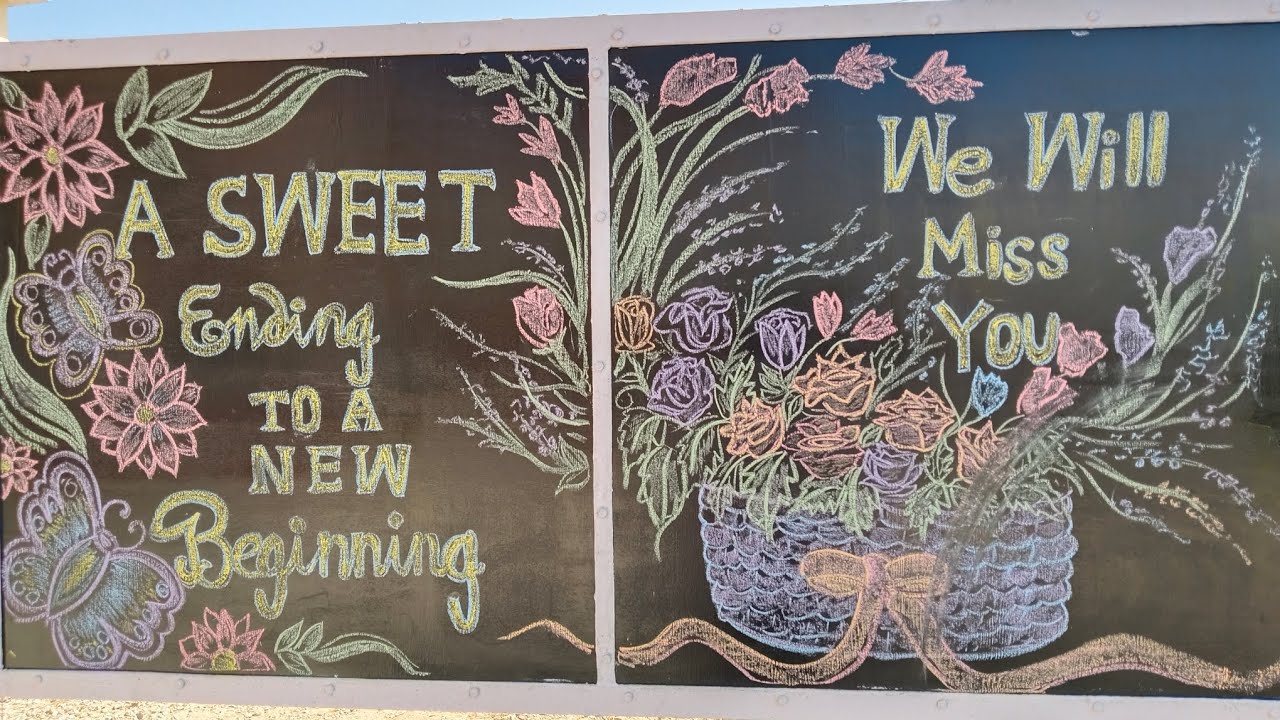 A SWEET
Ending
TO A
NEW
Beginning
We Will
Miss
You